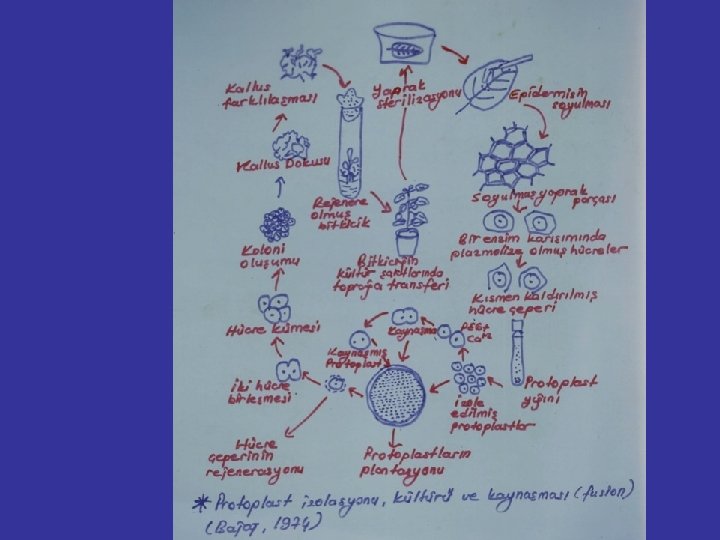 Yaprak
sterilizasyonu
Epidermisin
soyulması
Soyulmuş yaprak
parçası
Bir enzim karışımında
plazmolize olmuş hücreler
Kısmen kaldırılmış
hücre çeperi
Protoplast
yığını
izole
edilmiş
protoplastlar
PEG+
Ca+2
Kaynaşma
Kaynaşmış
Protoplast
Protoplastların
plantasyonu
Hücre
çeperinin
rejenerasyonu
İki hücre
birleşmesi
Hücre kümesi
Koloni
oluşumu
Kallus Dokusu
Kallus
farklılaşması
Rejenere
olmuş
bitkicik
Bitkiciğin
kültür şartlarında
toprağa transferi
* Protoplast izolasyonu, kültürü ve kaynaşması (fusion)
(Bajaj, 1974)